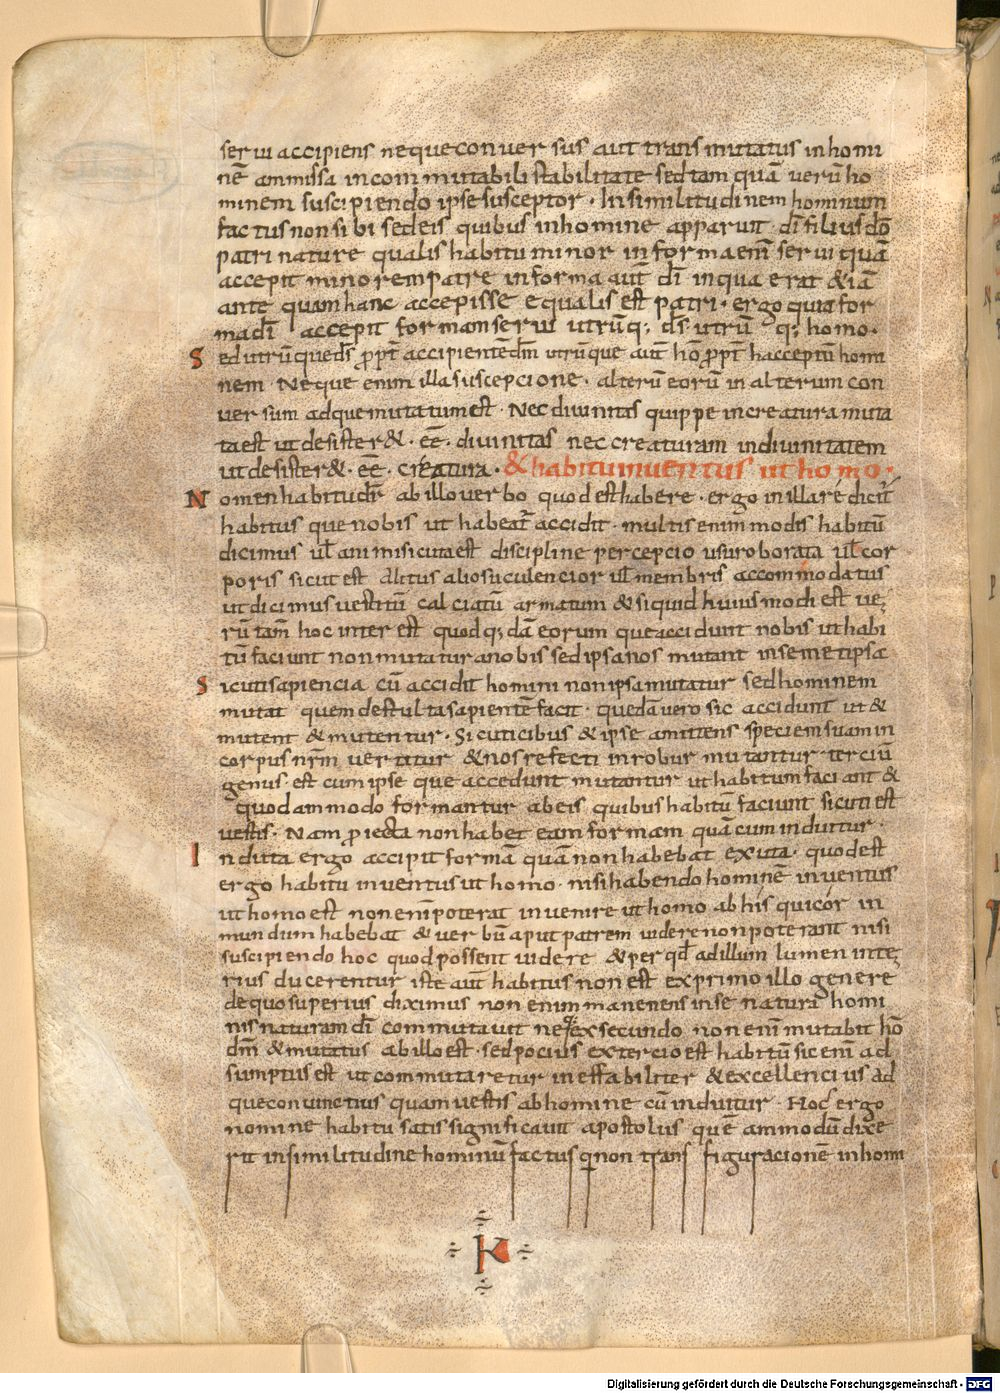 serui accipiens nequeconuersus aut transmutatus inhomi
nē ammissa incommutabili stabilitate sedtam quā uerū ho
minem suscipiendo ipse susceptor · Insimilitudinem hominum
factus nonsibi sedeis quibus inhomine apparuit · dī filius dō
patri nature qualis habitu minor informa enī serui quā
accepit minorem patre informa aut̄ dī inqua erat &iā
ante quam hanc accepisse equalis est patri · ergo quia for
madī accepit formam serui utrūq; d̄s utrū q; homo ·
Sed utrūque d̄s ꝓpt̄ accipientē dm̄ utrūque aut̄ hō ꝓpt̄ hacceptū homi
nem · Neque enim illa suscepcione · alterū eorū in alterum con
uersum adque mutatum est · Nec diuinitas quippe increatura muta
ta est ut desister& · eē · diuinitas nec creaturam indiuinitatem
ut desister& · eē · creatura · & habitu inuentus ut homo ·
Nomen habitu dr̄ ab illo uerbo quod est habere · ergo in illa re dicit̄
habitus que nobis ut habeat̄ accidit · multis enim modis habitū
dicimus ul̄ animi sicuta est discipline percepcio usu roborata ul̄ cor
poris sicut est Altus alio suculencior ul̄ membris accommodatus
ut dicimus uestitū calciatū armatum & siquid huiusmodi est ue
rū tam̄ hoc inter est quod q; dā eorum que accidunt nobis ut habi
tū faciunt non mutatur a nobis sed ipsa nos mutant in semetipsa
Sicuti sapiencia cū accidit homini non ipsa mutatur sed hominem
mutat quem de stulta sapientē facit · quedā uero sic accidunt ut &
mutent & mutentur · Sicuti cibus & ipse amittens speciem suam in
corpus nr̄m uertitur & nos refecti in robur mutantur terciū
genus · est cum ipse que accedunt mutantur ut habitum faciant &
quodammodo formantur ab eis quibus habitū faciunt sicuti est
uestis · Nam ꝓiecta non habet eam formam quā cum induitur ·
Induta ergo accipit formā quā non habebat exuta · quod est
ergo habitu inuentus ut homo · nisi habendo hominē inuentus
ut homo est non enī poterat inuenire ut homo ab his qui cor in
mundum habebat & uerbū aput patrem uidere non poterant nisi
suscipiendo hoc quod possent uidere & per qd̄ ad illum lumen inte
rius ducerentur iste aut̄ habitus non est ex primo illo genere
de quo superius diximus non enim manenens in se natura homi
nis naturam dī commutauit neq; ex secundo non enī mutabit hō
dm̄ & mutatus ab illo est · sed pocius ex tercio est habitū sic enī ad
sumptus est ut commutaretur ineffabiliter & excellencius ad
que conuinctius quam uestis ab homine cū induitur · Hoc ergo
nomine habitu satis significauit apostolus quē ammodū dixe
rit in similitudine hominū factus q̄ non transfiguracionē in homi
K
Digitalisierung gefördert durch die Deutsche Forschungsgemeinschaft - DFG